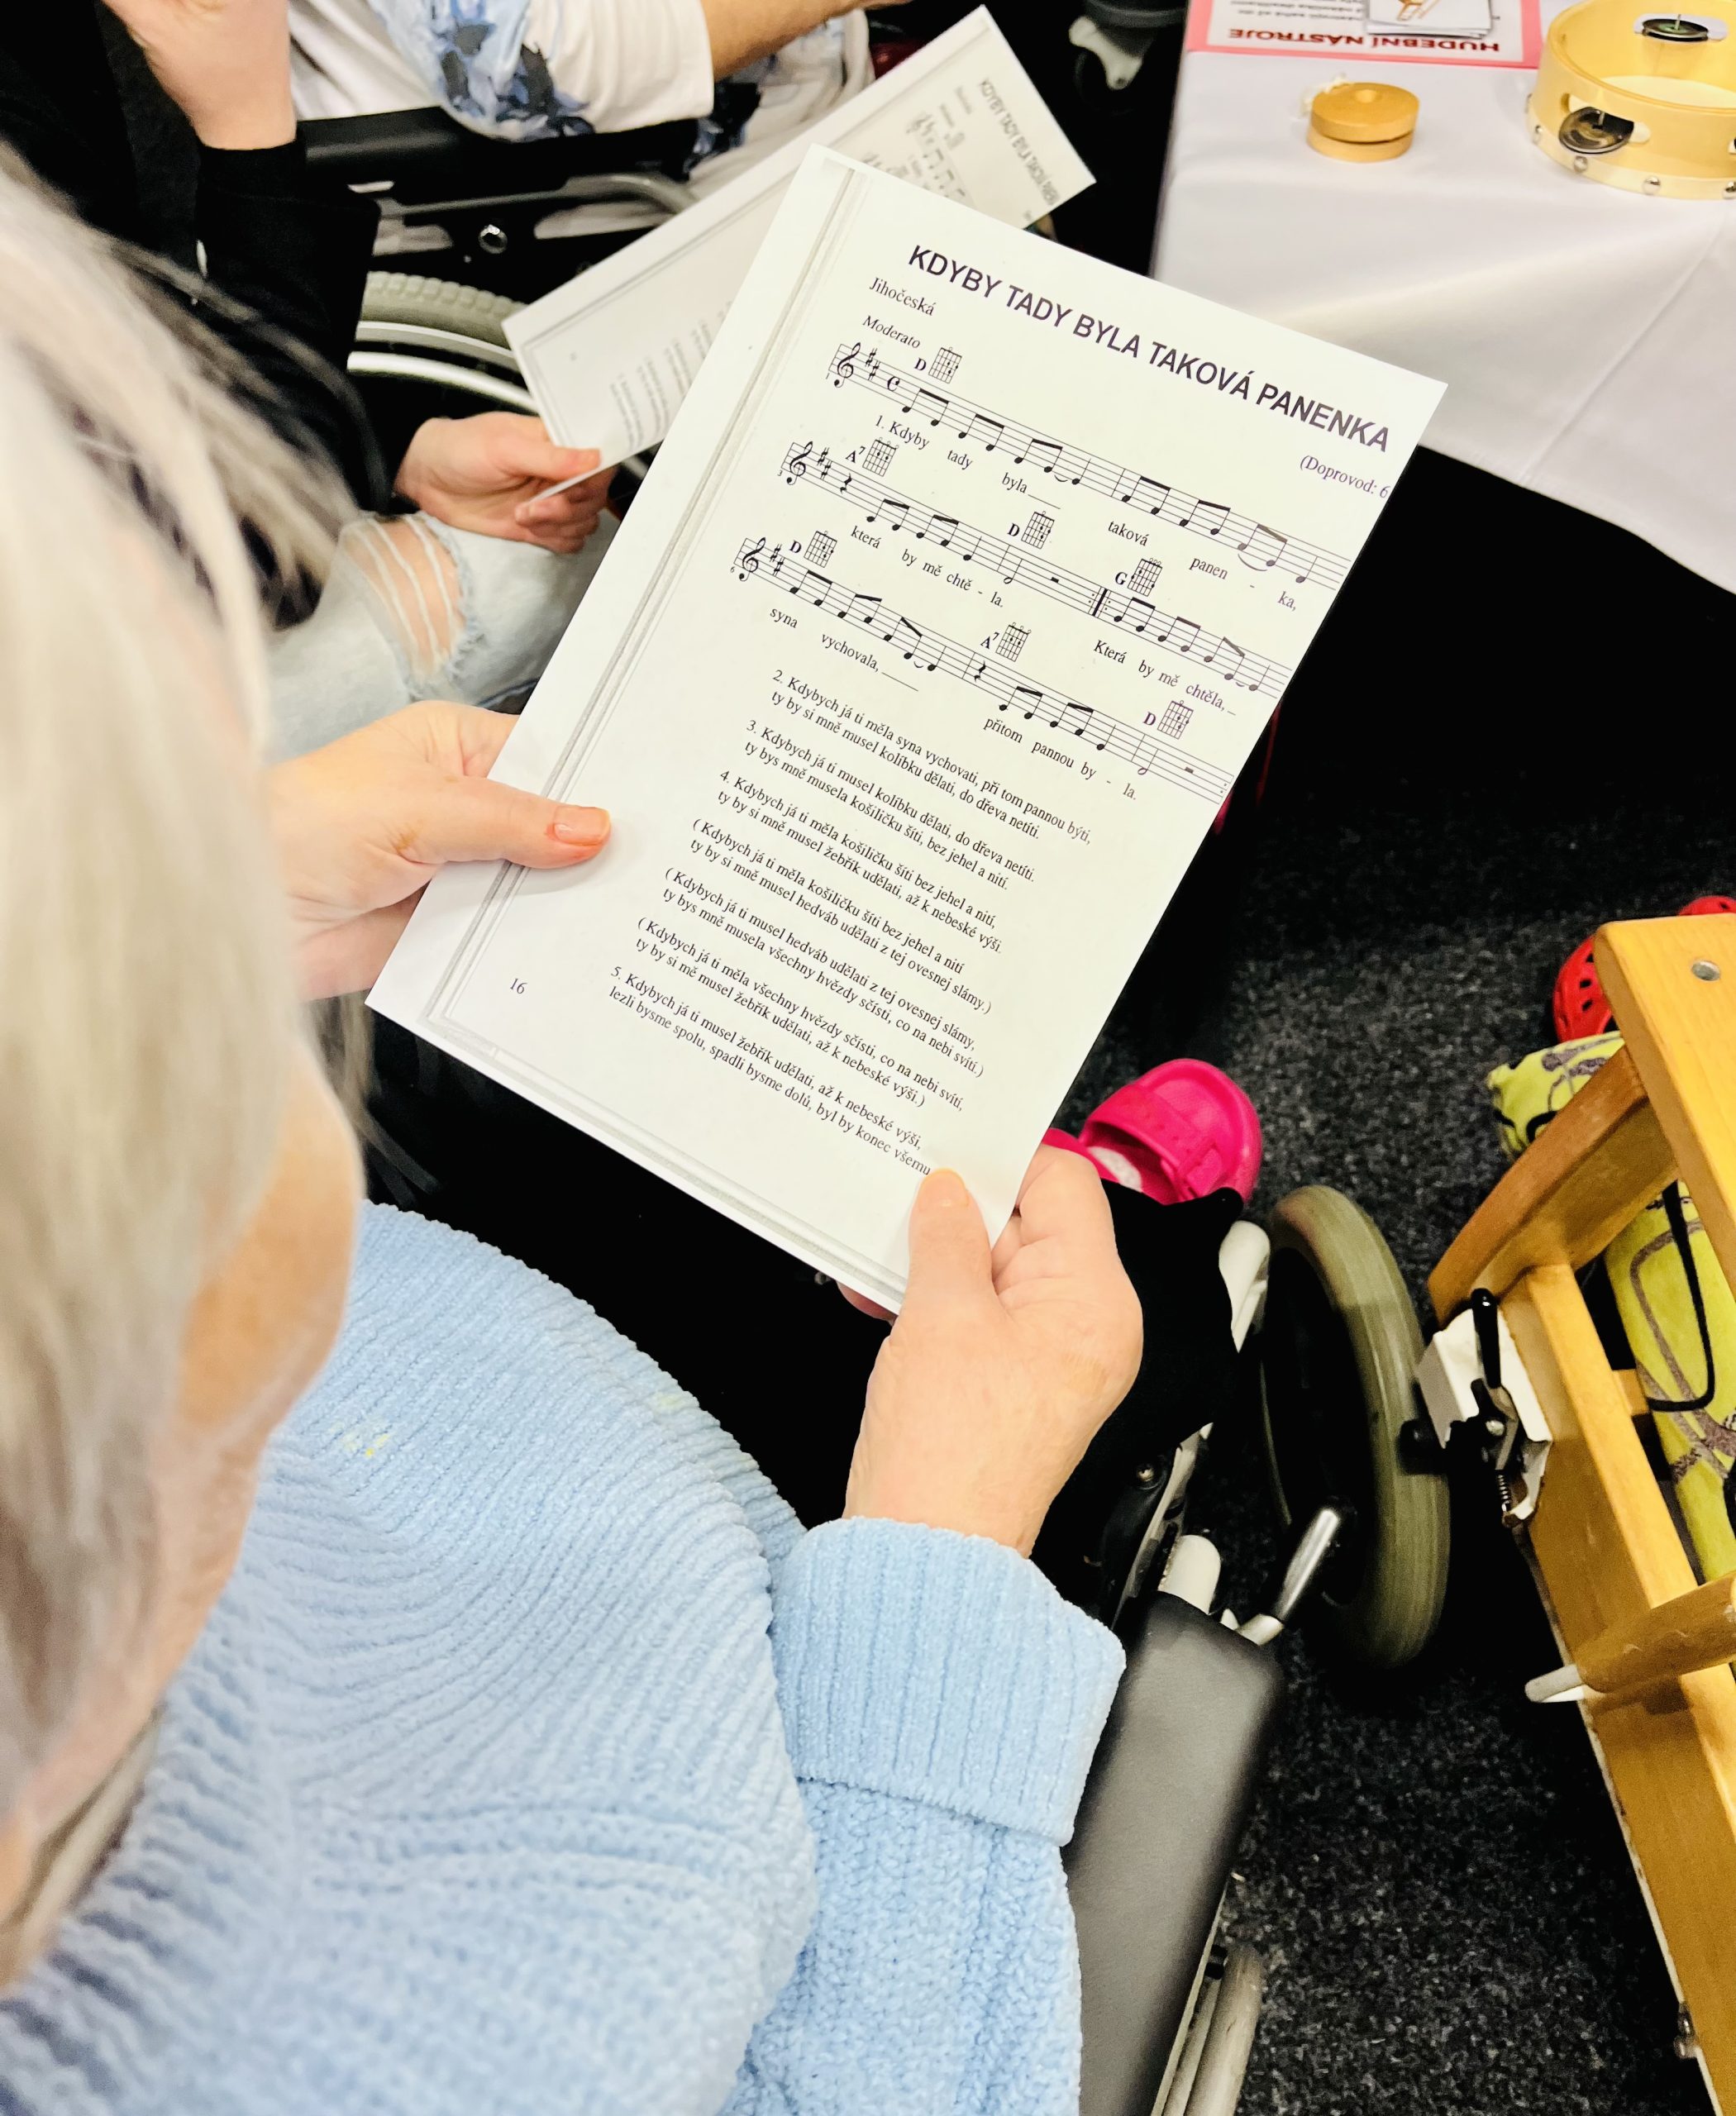 HUDEBNÍ NÁSTROJE
KDYBY TADY BYLA TAKOVÁ PANENKA
KDYBY TADY BYLA TAKOVÁ PANENKA
Jihočeská
(Doprovod: 6
Moderato
D
1. Kdyby tady byla____ taková panen - ka,
A7 D G
která by mě chtě - la. Která by mě chtěla,_
D A7 D
syna vychovala,____ přitom pannou by - la.
2. Kdybych já ti měla syna vychovati, při tom pannou býti,
ty by si mně musel kolíbku dělati, do dřeva netíti.
3. Kdybych já ti musel kolíbku dělati, do dřeva netíti.
ty bys mně musela košiličku šíti, bez jehel a nití.
4. Kdybych já ti měla košiličku šíti bez jehel a nití,
ty by si mně musel žebřík udělati, až k nebeské výši.
( Kdybych já ti měla košiličku šíti bez jehel a nití
ty by si mně musel hedváb udělati z tej ovesnej slámy.)
( Kdybych já ti musel hedváb udělati z tej ovesnej slámy,
ty bys mně musela všechny hvězdy sčísti, co na nebi svítí.)
( Kdybych já ti měla všechny hvězdy sčísti, co na nebi svítí,
ty by si mě musel žebřík udělati, až k nebeské výši.)
5. Kdybych já ti musel žebřík udělati, až k nebeské výši,
lezli bysme spolu, spadli bysme dolů, byl by konec všemu
16